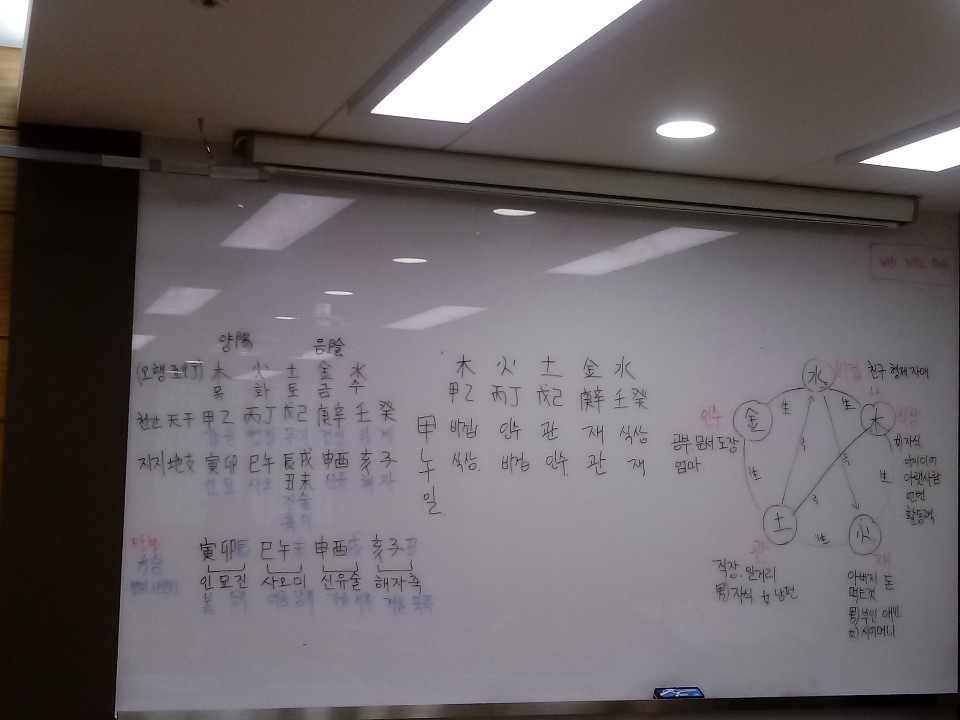 양陽 음陰
(오행 五行) 木 火 土 金 水
목 화 토 금 수
천간 天干 甲乙 丙丁 戊己 庚辛 壬癸
갑을 병정 무기 경신 임계
지지 地支 寅卯 巳午 辰戌 申酉 亥子
인묘 사오 丑未 신유 해자
진술
축미
方合 寅卯辰 巳午未 申酉戌 亥子丑
방합
인묘진 사오미 신유술 해자축
木 火 土 金 水
甲乙 丙丁 戊己 庚辛 壬癸
甲 비겁 인수 관 재 식상
午 식상 비겁 인수 관 재
일
水 비겁 친구 형제 자매
나
인수 金 生 生 木 식상
공부 문서 도장
엄마
女)자식
아이디어
아랫사람
언변
활동력
生 극 극 극 生
土 生 火
관 재
직장. 일거리
男)자식. 女 남편
아버지 돈
먹는것
男)부인 애인
女)시어머니